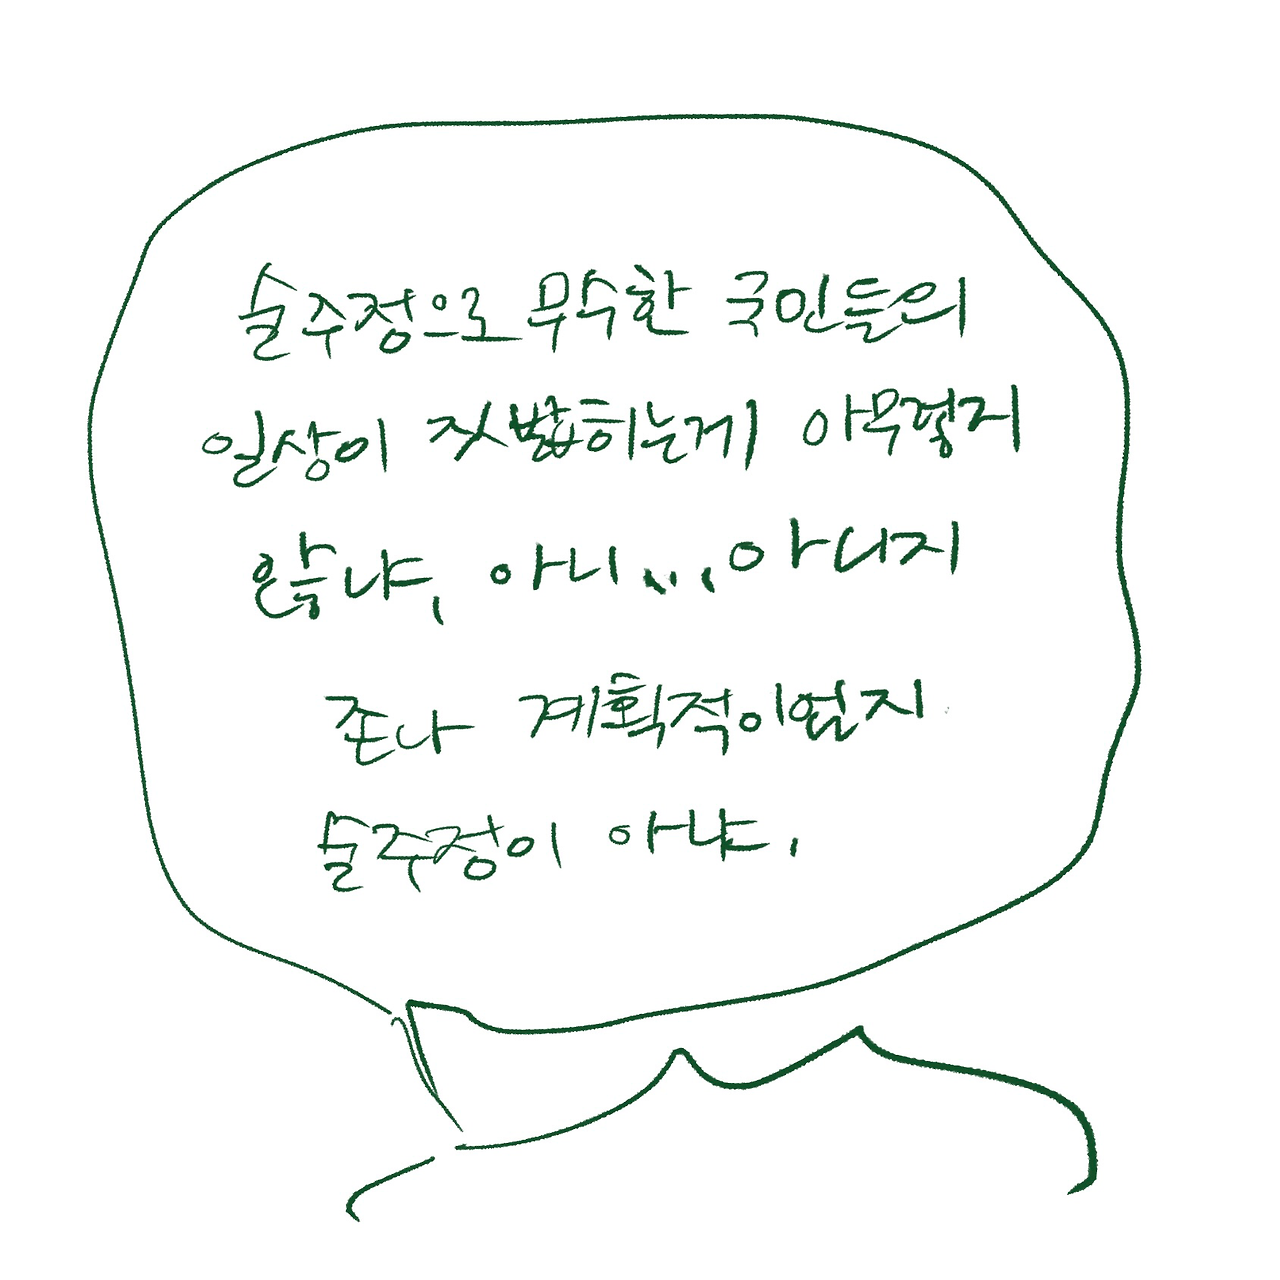 술주정으로 무수한 국민들의
일상이 짓밟히는게 아무렇지
않냐, 아니... 아니지
존나 계획적이었지
술주정이 아냐.